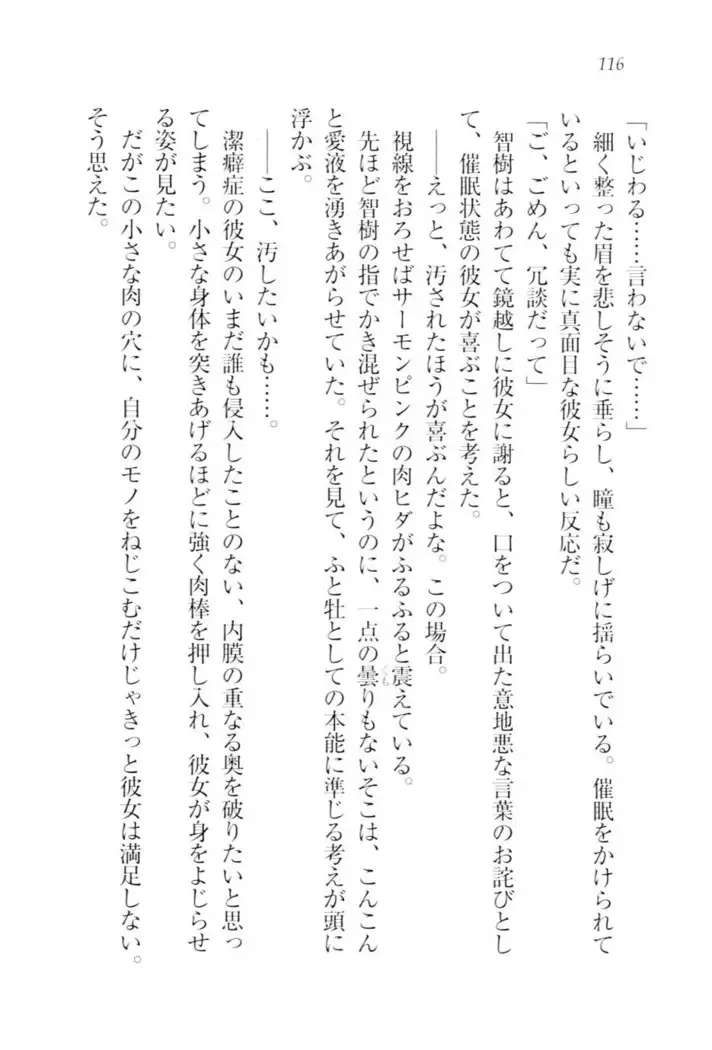 116
「いじわる……言わないで……」
　細く整った眉を悲しそうに垂らし、瞳も寂しげに揺らいでいる。催眠をかけられて
いるといっても実に真面目な彼女らしい反応だ。
「ご、ごめん、冗談だって」
　智樹はあわてて鏡越しに彼女に謝ると、口をついて出た意地悪な言葉のお詫びとし
て、催眠状態の彼女が喜ぶことを考えた。
　――えっと、汚されたほうが喜ぶんだよな。この場合。
　視線をおろせばサーモンピンクの肉ヒダがふるふると震えている。
　先ほど智樹の指でかき混ぜられたというのに、一点の曇りもないそこは、こんこん
と愛液を湧きあがらせていた。それを見て、ふと牡としての本能に準じる考えが頭に
浮かぶ。
　――ここ、汚したいかも……。
　潔癖症の彼女のいまだ誰も侵入したことのない、内膜の重なる奥を破りたいと思っ
てしまう。小さな身体を突きあげるほどに強く肉棒を押し入れ、彼女が身をよじらせ
る姿が見たい。
　だがこの小さな肉の穴に、自分のモノをねじこむだけじゃきっと彼女は満足しない。
そう思えた。